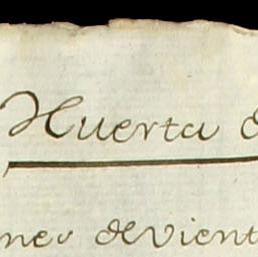 Huerta d
nes de vient